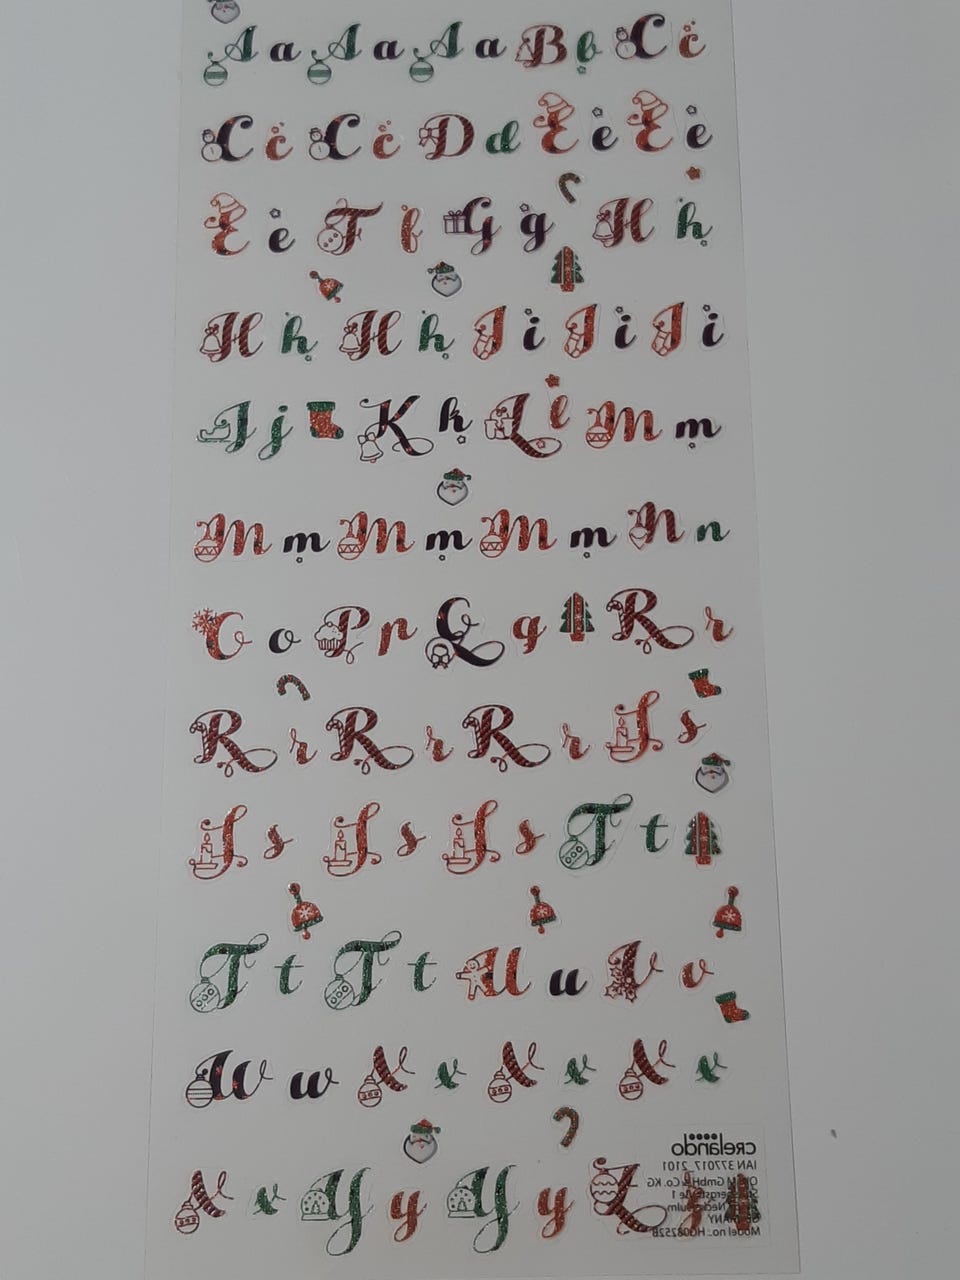 A a A a A a B b C c
C c C c D d E e E e
E e F f G g H h
H h H h I i I i I i
J j K k L l M m
M m M m M m N n
O o P p Q q R r
R r R r R r S s
S s S s S s T t
T t T t U u V v
W w X x X x X x
X x Y y Y y Z z
crelando
IAN 377017_2101
OWIM GmbH & Co. KG
Stiftsbergstraße 1
Neckarsulm
GERMANY
Model no.: HG08252B